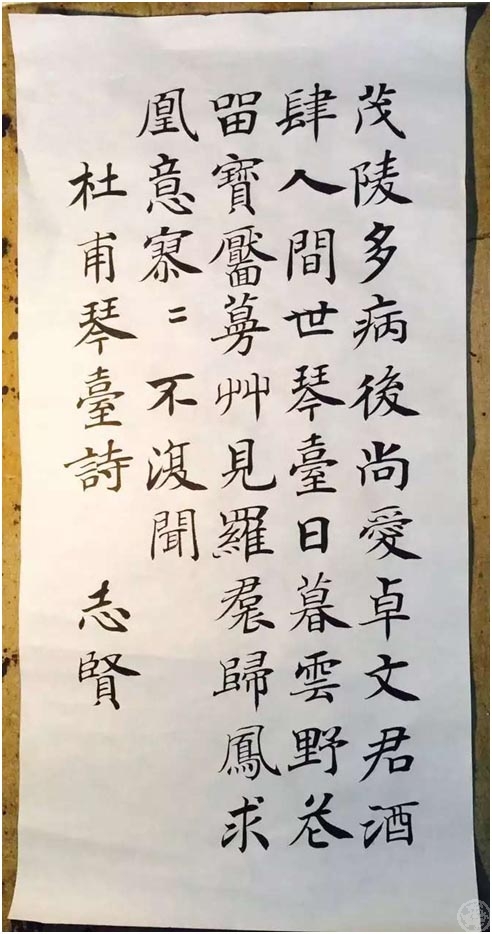 茂陵多病後尚愛卓文君酒
肆人間世琴臺日暮雲野花
留寶靨蔓艸見羅裠歸鳳求
凰意寥〻不復聞
杜甫琴臺詩 志賢